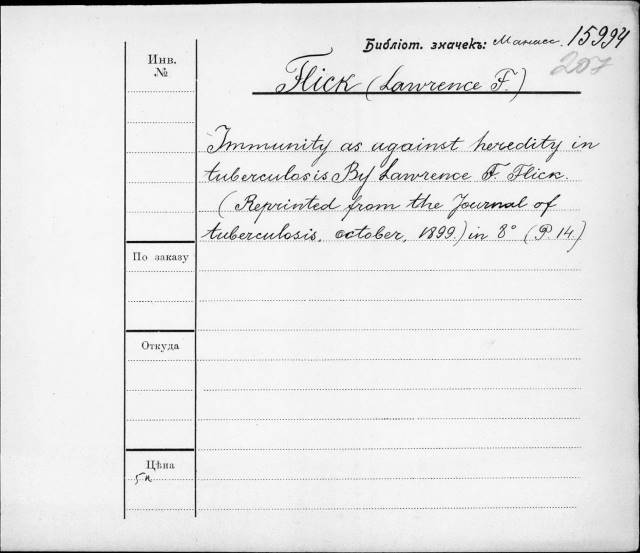 Библіот. значекъ: Манасс. 15994
207
Инв.
№
Flick (Lawrence F.)
Immunity as against heredity in
tuberculosis By Lawrence F. Flick.
(Reprinted from the Journal of
tuberculosis, october, 1899.) in 8° (P. 14.)
По заказу
Откуда
Цѣна
5 к